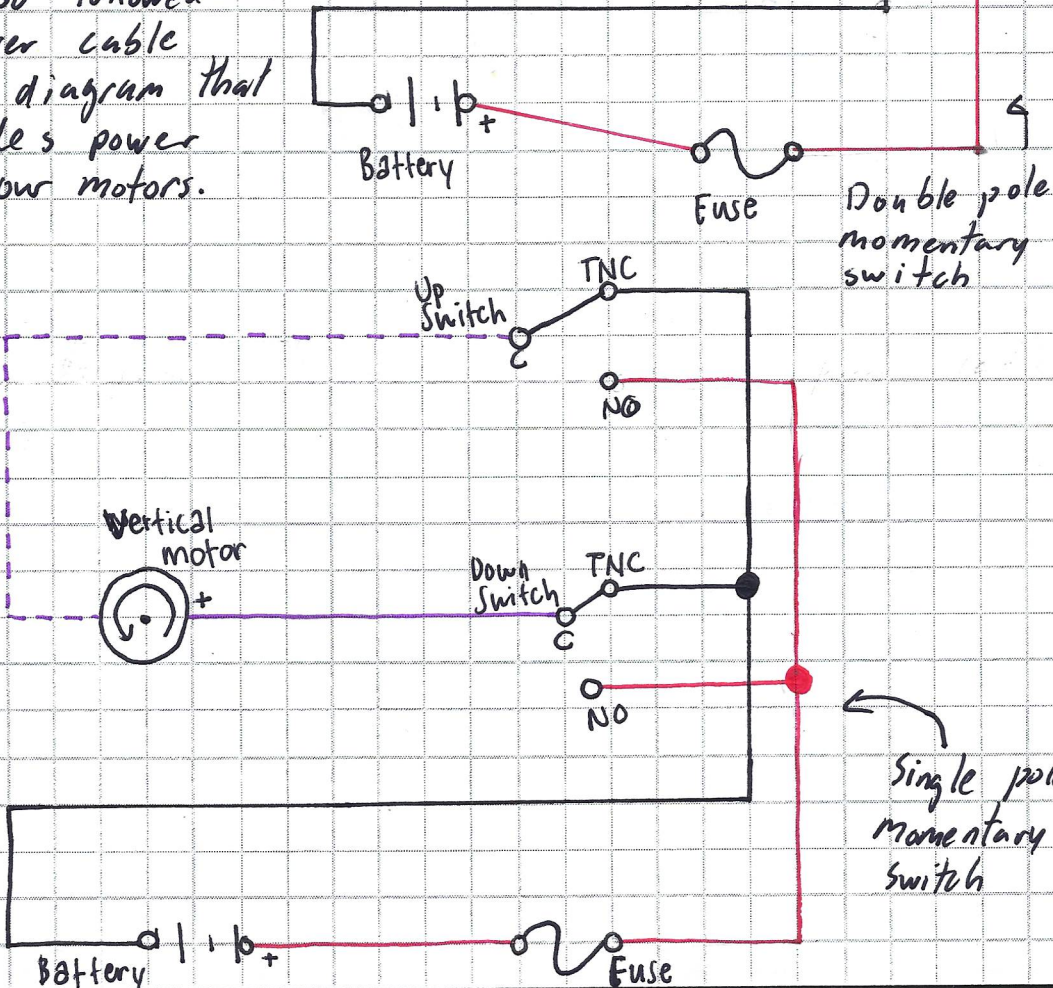 followed
cable
diagram that
power
motors.
+
Battery
Fuse
Double pole
momentary
switch
Up
Switch
TNC
C
NO
Vertical
motor
+
Down
Switch
TNC
C
NO
Single
momentary
switch
+
Battery
Fuse